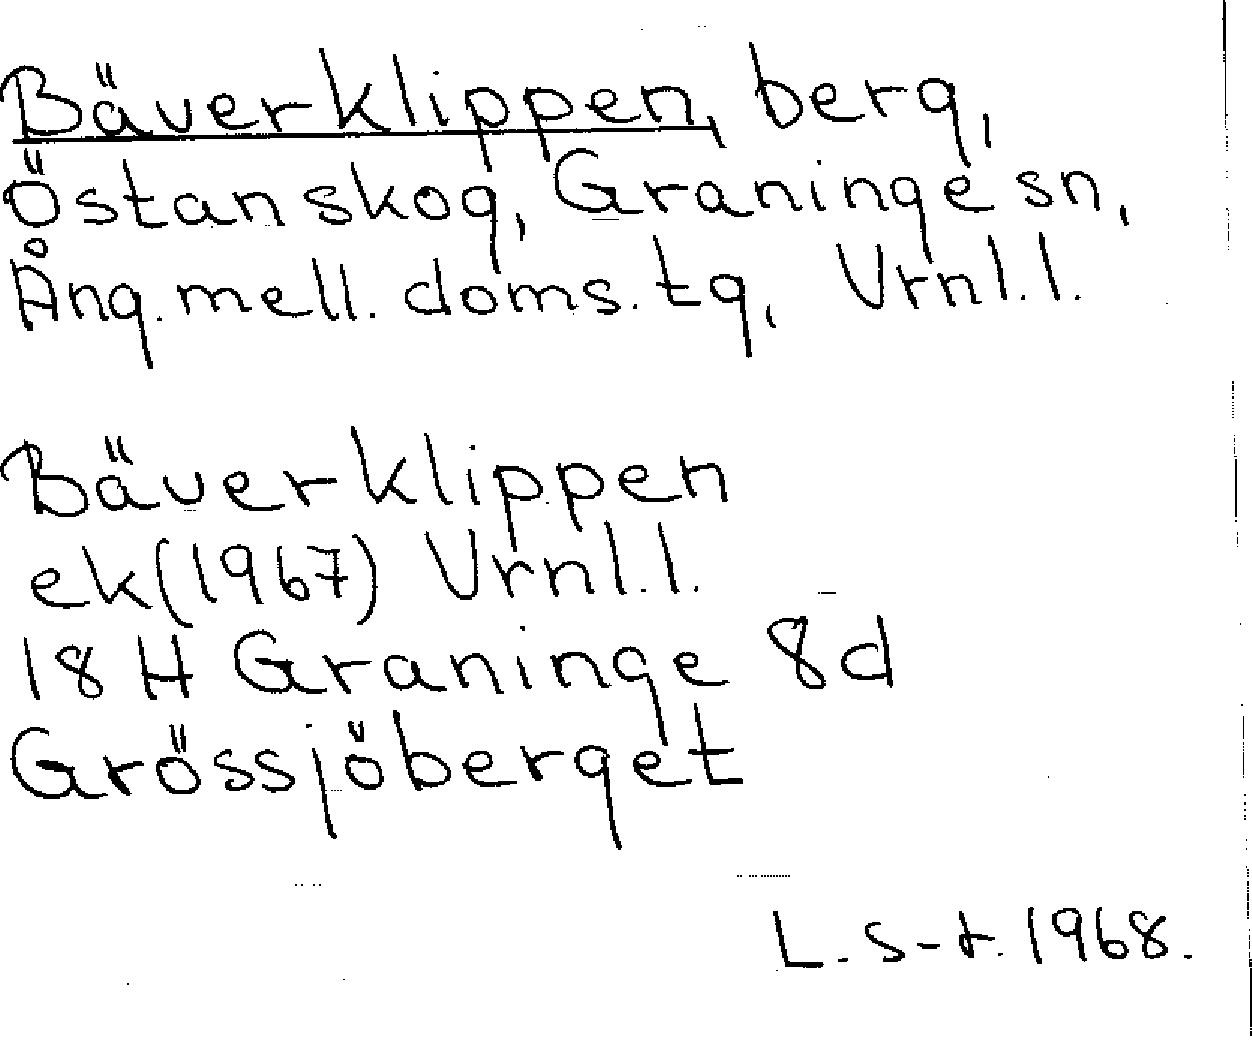 Bäverklippen, berg,
Östanskog, Graninge sn,
Ång.mell.doms.tg, Vrnl.l.
Bäverklippen
ek(1967) Vrnl.l.
18 H Graninge 8d
Grössjöberget
L.s-t.1968.